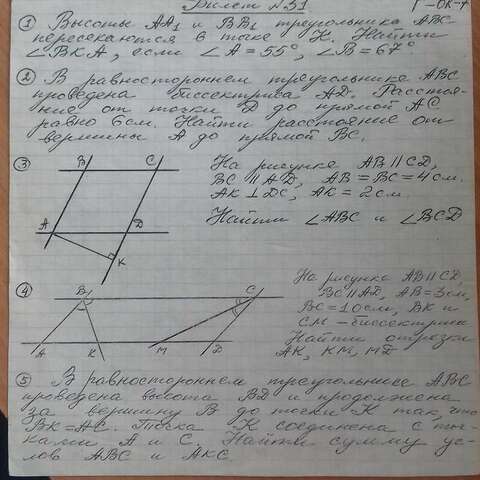 Билет №31
Г-ОК-7
① Высоты AA₁ и BB₁ треугольника ABC
пересекаются в точке K. Найти
∠BKA, если ∠A = 55°, ∠B = 67°.
② В равностороннем треугольнике ABC
проведена биссектриса AD. Расстоя-
ние от точки D до прямой AC
равно 6см. Найти расстояние от
вершины A до прямой BC.
③
B C
A D
K
На рисунке AB ∥ CD,
BC ∥ AD, AB = BC = 4см.
AK ⊥ DC, AK = 2см.
Найти ∠ABC и ∠BCD
④
B C
A K M D
На рисунке AB ∥ CD,
BC ∥ AD, AB = 3см,
BC = 10см, BK и
CM – биссектрисы
Найти отрезки
AK, KM, MD
⑤ В равностороннем треугольнике ABC
проведена высота BD и продолжена
за вершину B до точки K так, что
BK = AC. Точка K соединена с точ-
ками A и C. Найти сумму уг-
лов ABC и AKC.